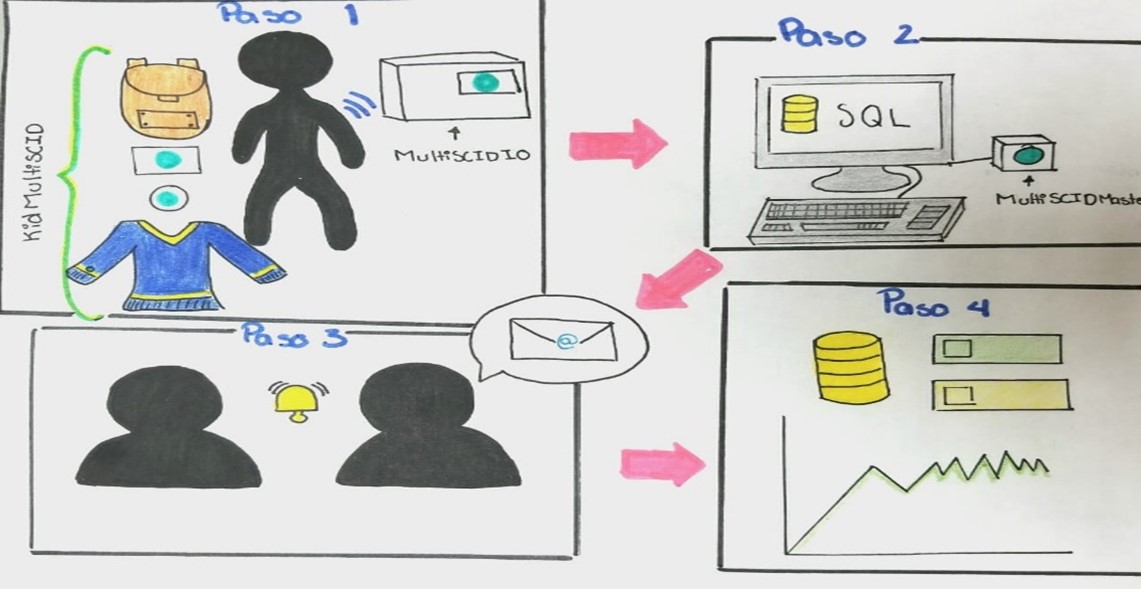 Paso 1
KidMultiSCID
MultiSCIDIO
Paso 2
SQL
MultiSCIDMaste
Paso 3
@
Paso 4